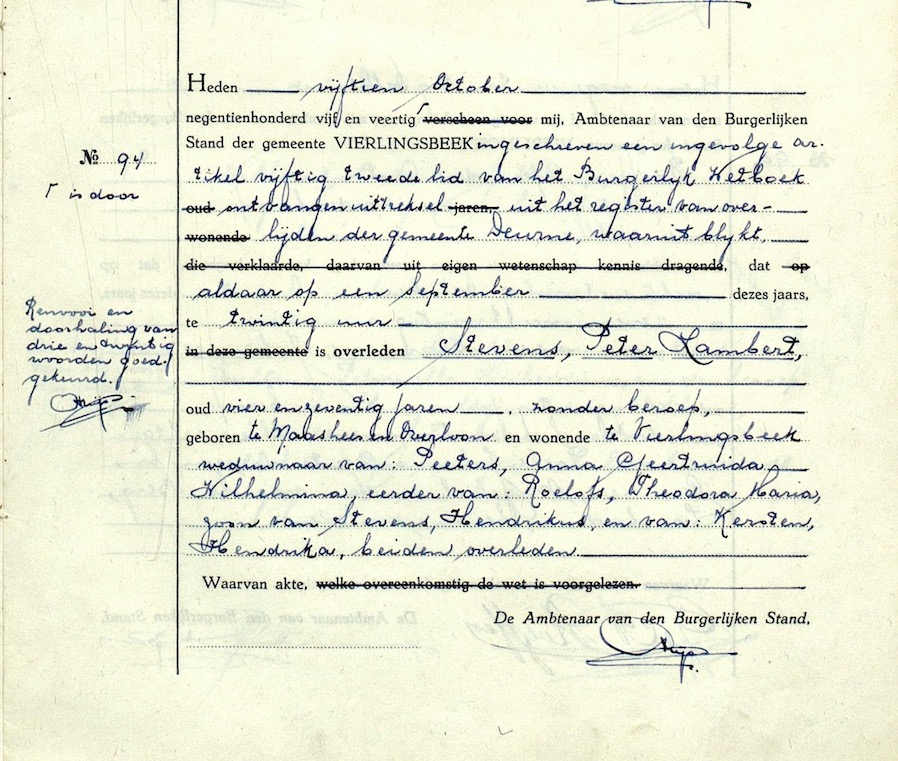 Heden vijftien October
negentienhonderd vijf en veertig ┌ verscheen voor mij, Ambtenaar van den Burgerlijken
Stand der gemeente VIERLINGSBEEK ingeschreven een ingevolge ar-
№ 94
tikel vijftig tweede lid van het Burgerlijk Wetboek
┌ is door
oud ontvangen uittreksel jaren, uit het register van over-
wonende lijden der gemeente Deurne, waaruit blijkt,
die verklaarde, daarvan uit eigen wetenschap kennis dragende, dat op
aldaar op een September dezes jaars,
te twintig uur
in deze gemeente is overleden Stevens, Peter Lambert,
Renvooi en
doorhaling van
drie en twintig
woorden goed-
gekeurd.
oud vier en zeventig jaren, zonder beroep,
geboren te Maashees en Overloon en wonende te Vierlingsbeek
weduwnaar van: Peeters, Anna Geertruida
Wilhelmina, eerder van: Roelofs, Theodora Maria,
zoon van Stevens, Hendrikus, en van: Kersten,
Hendrika, beiden overleden.
Waarvan akte, welke overeenkomstig de wet is voorgelezen.
De Ambtenaar van den Burgerlijken Stand,